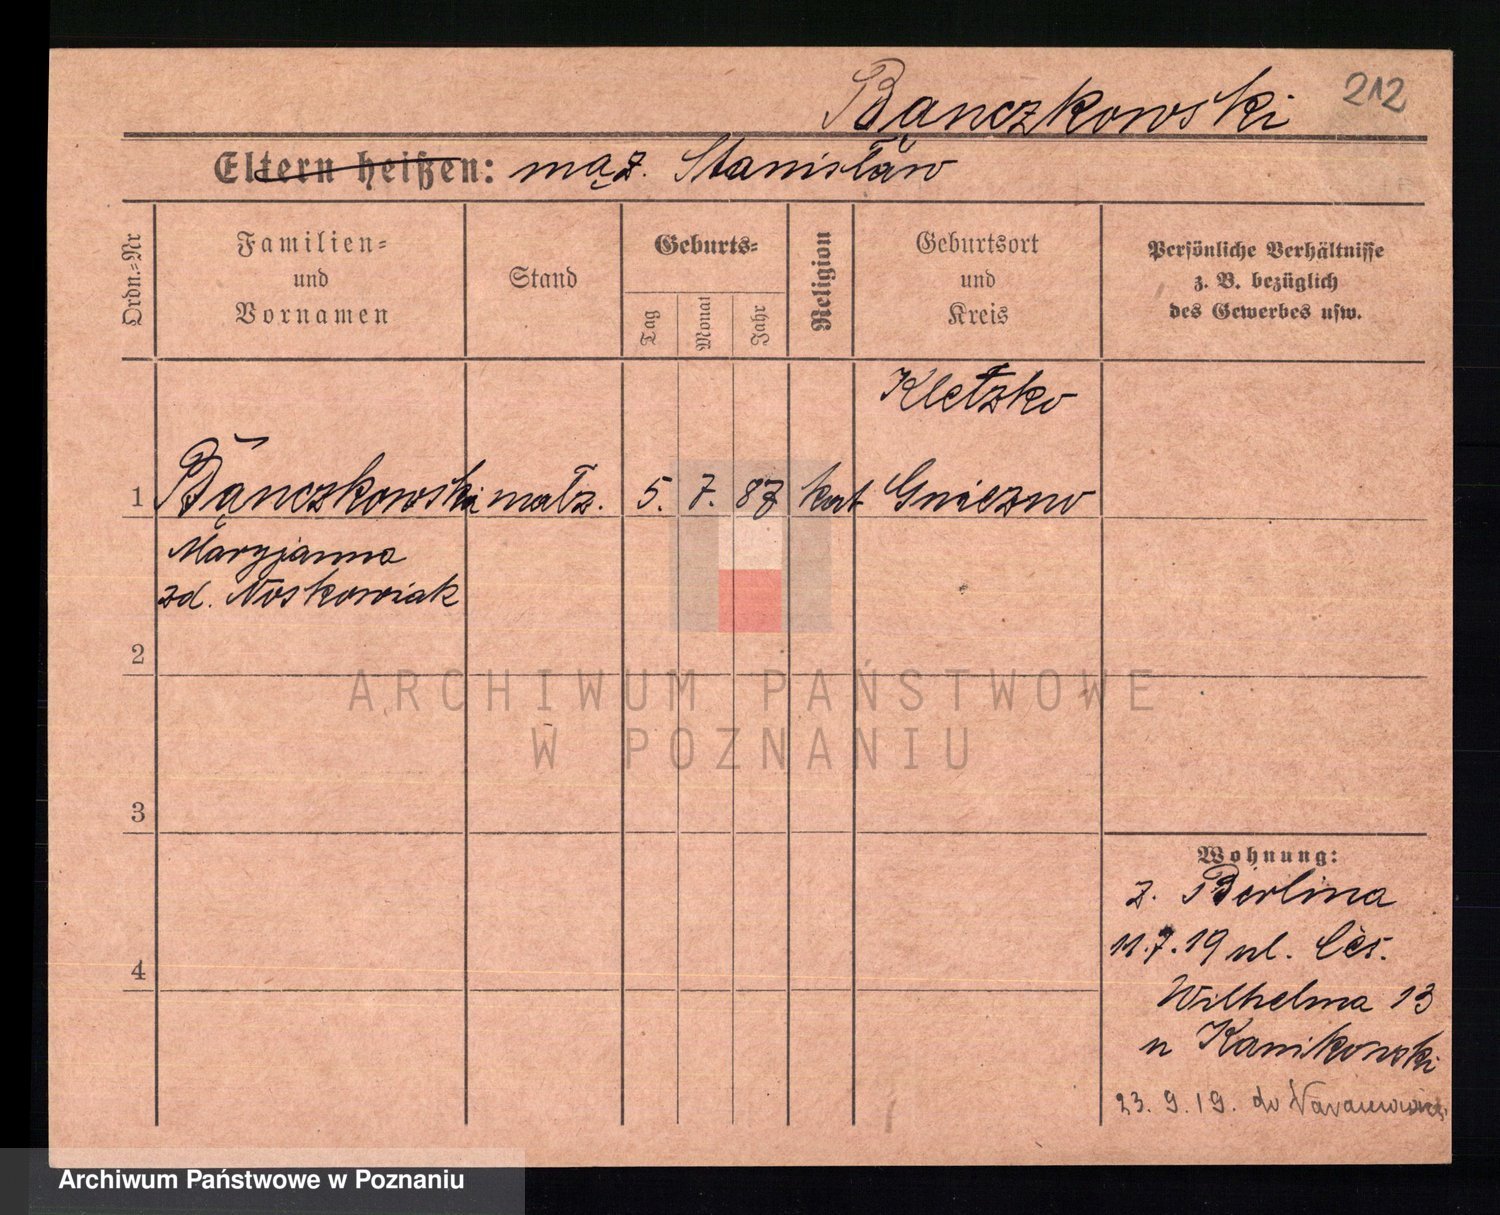 Bączkowski 212
Eltern heißen: mąż. Stanisław
Ordn.=Nr
Familien=
und
Vornamen
Stand
Geburts=
Tag
Monat
Jahr
Religion
Geburtsort
und
Kreis
Persönliche Verhältnisse
z. B. bezüglich
des Gewerbes usw.
Kletzko
1 Bączkowski małż. 5. 7. 87 kat Gniezno
Maryjanna
zd. Noskowiak
2
ARCHIWUM PAŃSTWOWE
W POZNANIU
3
Wohnung:
z. Berlina
11.7.19 ul. Ces.
4
Wilhelma 13
u Kanikowski
23. 9. 19. do
Archiwum Państwowe w Poznaniu